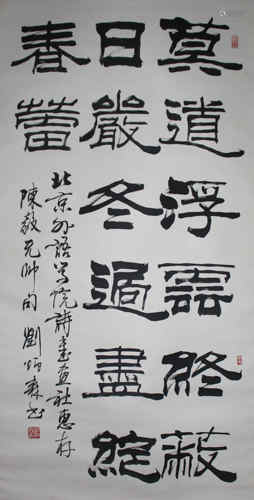 莫道浮雲終蔽
日嚴冬過盡綻
春蕾
北京外語学院詩書画社惠存
陳毅元帥句 劉炳森書